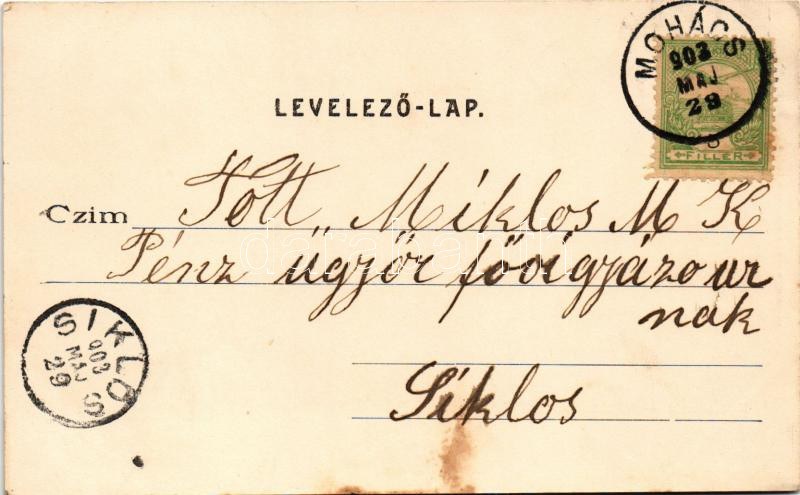 MOHÁCS
903
MAJ
29
FILLÉR
LEVELEZŐ-LAP.
Czim Tott Miklos M K
Pénz ügyőr fővigyázo ur
nak
Siklos
SIKLÓS
903
MAJ
29